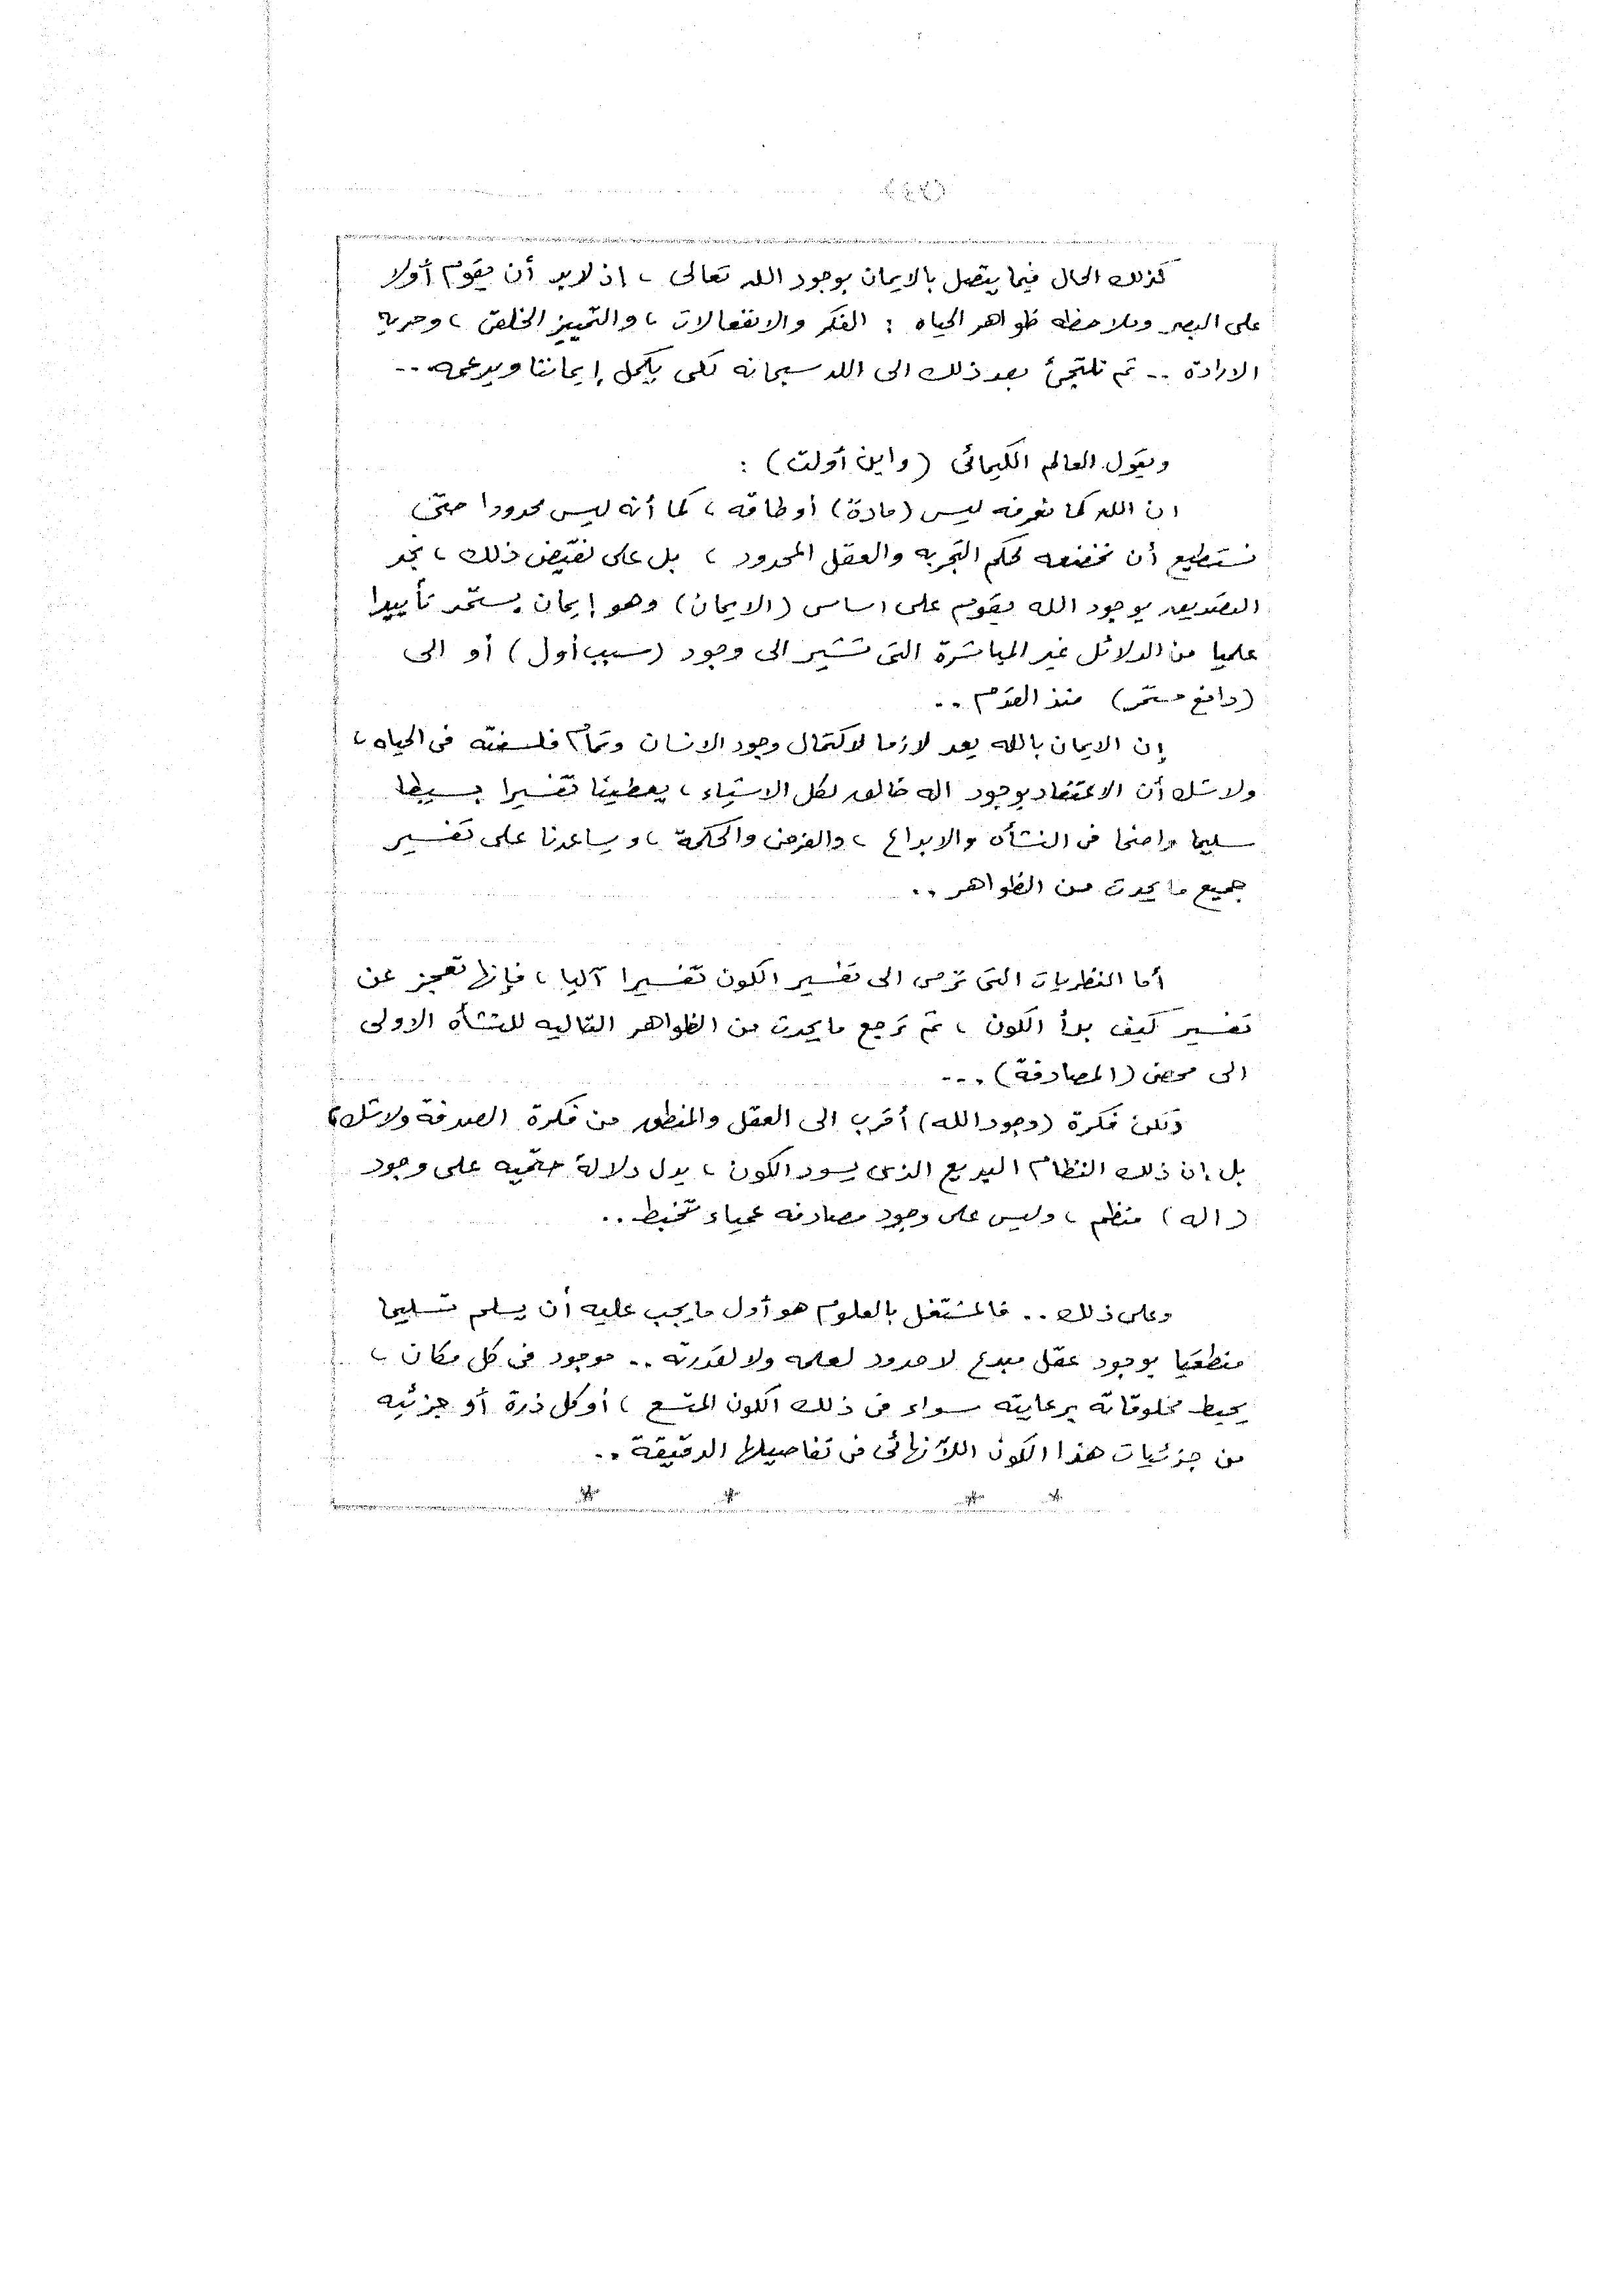 كذلك الحال فيما يتصل بالايمان بوجود الله تعالى ، اذ لابد أن يقوم أولا
على البصر وملاحظه ظواهر الحياه : الفكر والانفعالات ، والتمييز الخلقى ، وحريه
الارادة .. ثم نلتجئ بعد ذلك الى الله سبحانه لكى يكمل إيماننا ويدعمه ...
ويقول العالم الكيمائى (واين أولت) :
ان الله كما نعرفه ليس (مادة) أو طاقه ، كما أنه ليس محدودا حتى
نستطيع أن نخضعه لحكم التجربه والعقل المحدود ، بل على نقيض ذلك ، نجد
التصديق بوجود الله يقوم على اساس (الايمان) وهو إيمان يستمد تأييدا
علميا من الدلائل غير المباشرة التى تشير الى وجود (سبب أول) أو الى
(دافع مستمر) منذ القدم ..
إن الايمان بالله يعد لازما لاكتمال وجود الانسان وتمام فلسفته فى الحياه ،
ولاشك أن الاعتقاد بوجود اله خالق لكل الاشياء ، يعطينا تفسيرا بسيطا
سليما واضحا فى النشأه والابداع ، والغرض والحكمة ، ويساعدنا على تفسير
جميع ما يحدث من الظواهر ..
أما النظريات التى ترمى الى تفسير الكون تفسيرا آليا ، فإنها تعجز عن
تفسير كيف بدأ الكون ، ثم ترجع ما يحدث من الظواهر التاليه للنشأه الاولى
الى محض (المصادفة) ...
وتكن فكرة (وجود الله) أقرب الى العقل والمنطق من فكرة الصدفة ولاشك ،
بل إن ذلك النظام البديع الذى يسود الكون ، يدل دلالة حتميه على وجود
(اله) منظم ، وليس على وجود مصادفه عمياء تتخبط ..
وعلى ذلك .. فالمشتغل بالعلوم هو أول ما يجب عليه أن يسلم تسليما
منطقيا بوجود عقل مبدع لا حدود لعلمه ولا لقدرته .. موجود فى كل مكان ،
يحيط مخلوقاته برعايته سواء فى ذلك الكون المتسع ، أو كل ذرة أو جزئيه
من جزئيات هذا الكون اللآنهائى فى تفاصيلها الدقيقة ..